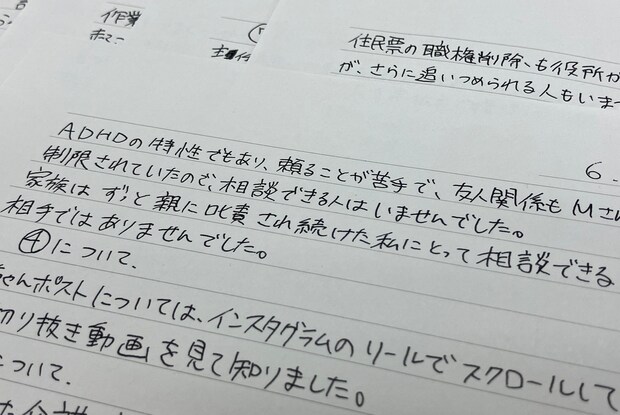 作業
住民票の職権削除、も役所か
が、さらに追いつめられる人もいま
6.
ADHDの特性でもあり、頼ることが苦手で、友人関係もMさ
制限されていたので、相談できる人はいませんでした。
家族はずっと親に叱責され続けた私にとって相談できる
相手ではありませんでした。
④について.
ゃんポストについては、インスタグラムのリールでスクロールして
切り抜き動画を見て知りました。
について.